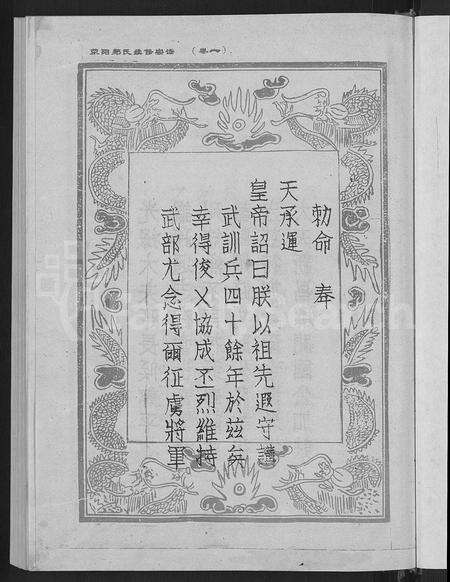 荥阳郑氏续修宗谱 （卷一）
勅命 奉
天承運
皇帝詔曰朕以祖先遐守講
武訓兵四十餘年於茲矣
幸得俊乂協成丕烈維持
武部尤念得爾征虜將軍